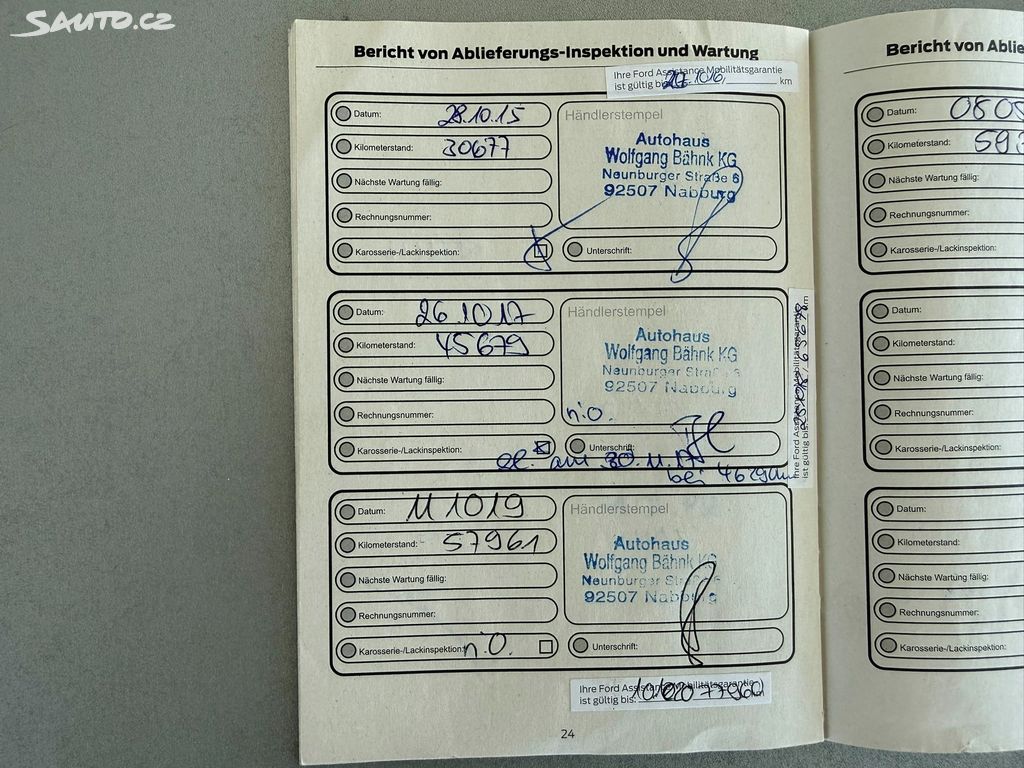 SAUTO.CZ
Bericht von Ablieferungs-Inspektion und Wartung
Ihre Ford Assistance Mobilitätsgarantie
ist gültig bis km
Datum: 28.10.15
Kilometerstand: 30677
Nächste Wartung fällig:
Rechnungsnummer:
Karosserie-/Lackinspektion:
Händlerstempel
Autohaus
Wolfgang Bähnk KG
Neunburger Straße 6
92507 Nabburg
Unterschrift:
Datum: 26 10 17
Kilometerstand: 45679
Nächste Wartung fällig:
Rechnungsnummer:
Karosserie-/Lackinspektion:
Händlerstempel
Autohaus
Wolfgang Bähnk KG
Neunburger Straße 6
92507 Nabburg
n.i.O.
Unterschrift:
am 30.11.17
bei
Ihre Ford Assistance Mobilitätsgarantie
ist gültig bis: km
Datum: 11 10 19
Kilometerstand: 57961
Nächste Wartung fällig:
Rechnungsnummer:
Karosserie-/Lackinspektion: n.i.O.
Händlerstempel
Autohaus
Wolfgang Bähnk KG
Neunburger Straße 6
92507 Nabburg
Unterschrift:
Ihre Ford Assistance Mobilitätsgarantie
ist gültig bis: km
24
Bericht von Ablie
Datum:
Kilometerstand:
Nächste Wartung fällig:
Rechnungsnummer:
Karosserie-/Lackinspektion:
Datum:
Kilometerstand:
Nächste Wartung fällig:
Rechnungsnummer:
Karosserie-/Lackinspektion:
Datum:
Kilometerstand:
Nächste Wartung fällig:
Rechnungsnummer:
Karosserie-/Lackinspektion: